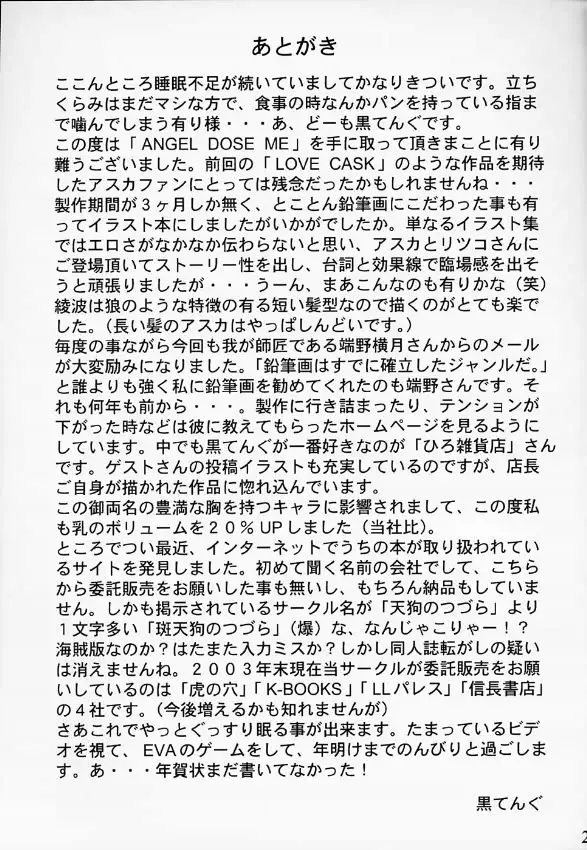 あとがき
ここんところ睡眠不足が続いていましてかなりきついです。立ち
くらみはまだマシな方で、食事の時なんかパンを持っている指ま
で噛んでしまう有り様・・・あ、どーも黒てんぐです。
この度は「ANGEL DOSE ME」を手に取って頂きまことに有り
難うございました。前回の「LOVE CASK」のような作品を期待
したアスカファンにとっては残念だったかもしれませんね・・・
製作期間が3ヶ月しか無く、とことん鉛筆画にこだわった事も有
ってイラスト本にしましたがいかがでしたか。単なるイラスト集
ではエロさがなかなか伝わらないと思い、アスカとリツコさんに
ご登場頂いてストーリー性を出し、台詞と効果線で臨場感を出そ
うと頑張りましたが・・・うーん、まあこんなのも有りかな（笑）
綾波は狼のような特徴の有る短い髪型なので描くのがとても楽で
した。（長い髪のアスカはやっぱしんどいです。）
毎度の事ながら今回も我が師匠である端野横月さんからのメール
が大変励みになりました。「鉛筆画はすでに確立したジャンルだ。」
と誰よりも強く私に鉛筆画を勧めてくれたのも端野さんです。そ
れも何年も前から・・・。製作に行き詰まったり、テンションが
下がった時などは彼に教えてもらったホームページを見るように
しています。中でも黒てんぐが一番好きなのが「ひろ雑貨店」さん
です。ゲストさんの投稿イラストも充実しているのですが、店長
ご自身が描かれた作品に惚れ込んでいます。
この御両名の豊満な胸を持つキャラに影響されまして、この度私
も乳のボリュームを20％UPしました（当社比）。
ところでつい最近、インターネットでうちの本が取り扱われてい
るサイトを発見しました。初めて聞く名前の会社でして、こちら
から委託販売をお願いした事も無いし、もちろん納品もしていま
せん。しかも掲示されているサークル名が「天狗のつづら」より
1文字多い「斑天狗のつづら」（爆）な、なんじゃこりゃー！？
海賊版なのか？はたまた入力ミスか？しかし同人誌転がしの疑い
は消えませんね。2003年末現在当サークルが委託販売をお願
いしているのは「虎の穴」「K-BOOKS」「LLパレス」「信長書店」
の4社です。（今後増えるかも知れませんが）
さあこれでやっとぐっすり眠る事が出来ます。たまっているビデ
オを視て、EVAのゲームをして、年明けまでのんびりと過ごしま
す。あ・・・年賀状まだ書いてなかった！
黒てんぐ